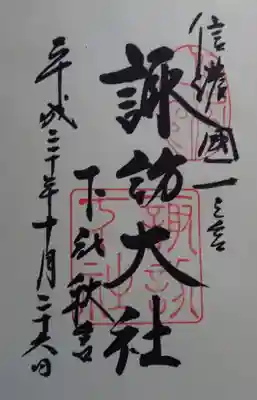 信濃國一之宮
諏訪大社
下社秋宮
平成二十年十月二十六日